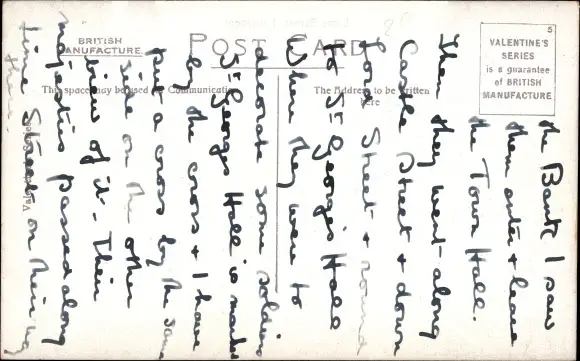 BRITISH
MANUFACTURE
POST CARD
This space may be used for Communication
The Address to be written
here
5
VALENTINE'S
SERIES
is a guarantee
of BRITISH
MANUFACTURE
the Bank I saw
them enter & leave
the Town Hall.
Then they went along
Castle Street & down
Lord Street & round
to St George's Hall
Where they were to
decorate some soldiers
St Georges Hall is marked
by the cross & I have
put a cross by the same
side on the other
view of it. Their
majesties passed along
Lime Street on their way